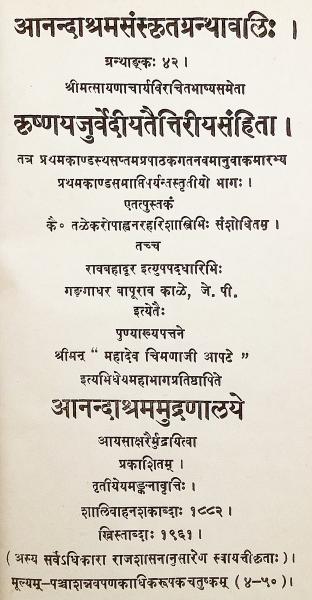 आनन्दाश्रमसंस्कृतग्रन्थावलिः ।
ग्रन्थाङ्कः ४२ ।
श्रीमत्सायणाचार्यविरचितभाष्यसमेता
कृष्णयजुर्वेदीयतैत्तिरीयसंहिता ।
तत्र प्रथमकाण्डस्थसप्तमप्रपाठकगतनवमानुवाकमारभ्य
प्रथमकाण्डसमाप्तिपर्यन्तस्तृतीयो भागः ।
एतत्पुस्तकं
कै॰ तळेकरोपाह्वनरहरिशास्त्रिभिः संशोधितम् ।
तच्च
रावबहादूर इत्युपपदधारिभिः
गङ्गाधर बापूराव काळे, जे. पी.
इत्येतैः
पुण्याख्यपत्तने
श्रीमन् " महादेव चिमणाजी आपटे "
इत्यभिधेयमहाभागप्रतिष्ठापिते
आनन्दाश्रममुद्रणालये
आयसाक्षरैर्मुद्रयित्वा
प्रकाशितम् ।
तृतीयेयमङ्कनावृत्तिः ।
शालिवाहनशकाब्दाः १८८२ ।
ख्रिस्ताब्दाः १९६१ ।
( अस्य सर्वेऽधिकारा राजशासनानुसारेण स्वायत्तीकृताः ) ।
मूल्यम्-पञ्चाशन्नवपणकाधिकरूपकचतुष्कम् ( ४-५० ) ।